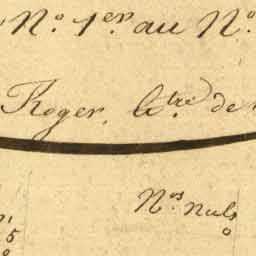 N.º 1.er au N.º
Roger, L.tre de
N.os nuls
5
0
0